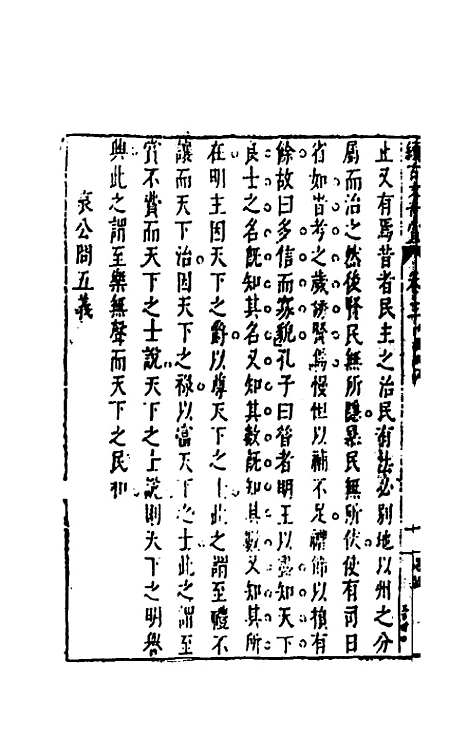 止又有焉昔者民主之治民有法必別地以州之分
屬而治之然後賢民無所隱暴民無所伏使有司日
省如旹考之歲誘賢焉慢怛以補不足禮節以損有
餘故曰多信而寡貌孔子曰昔者明王以盡知天下
良士之名旣知其名又知其數旣知其數又知其所
在明主因天下之爵以尊天下之士此之謂至禮不
讓而天下治因天下之祿以富天下之士此之謂至
賞不費而天下之士說天下之士說則天下之明譽
興此之謂至樂無聲而天下之民和
哀公問五義
卷三